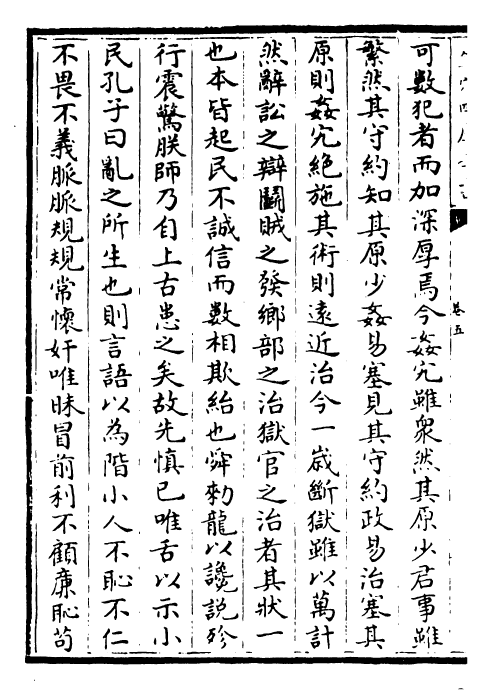 卷五
可數犯者而加深厚焉今姦宄雖衆然其原少君事雖
繁然其守約知其原少姦易塞見其守約政易治塞其
原則姦宄絶施其術則遠近治今一嵗斷獄雖以萬計
然辭訟之辯鬭賊之發鄉部之治獄官之治者其狀一
也本皆起民不誠信而數相欺紿也舜勑龍以讒説殄
行震驚朕師乃自上古患之矣故先慎已唯舌以示小
民孔子曰亂之所生也則言語以為階小人不恥不仁
不畏不義脈脈規規常懷奸唯昧冒前利不顧廉恥苟